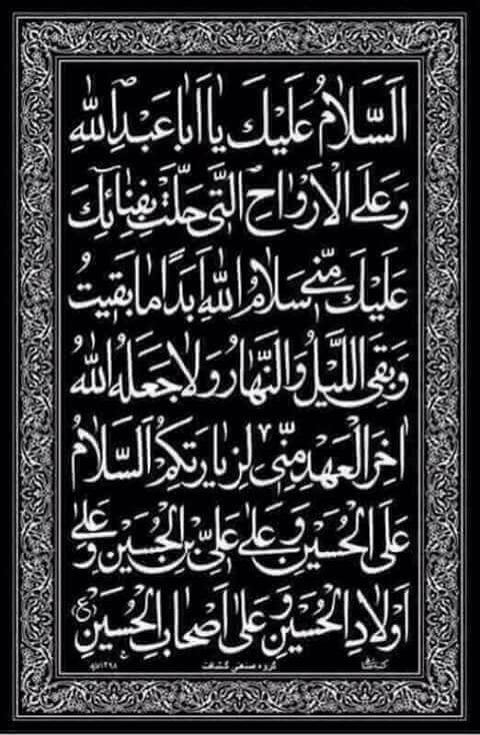 اَلسَّلامُ عَلَيْكَ يا اَبا عَبْدِاللهِ
وَ عَلَى الْاَرْواحِ الَّتى حَلَّتْ بِفِنائِكَ
عَلَيْكَ مِنّى سَلامُ اللهِ اَبَدًا ما بَقيتُ
وَ بَقِىَ اللَّيْلُ وَ النَّهارُ وَ لا جَعَلَهُ اللهُ
اخِرَ الْعَهْدِ مِنّى لِزِيارَتِكُمْ اَلسَّلامُ
عَلَى الْحُسَيْنِ وَ عَلى عَلِىِّ بْنِ الْحُسَيْنِ وَ عَلى
اَوْلادِ الْحُسَيْنِ وَ عَلى اَصْحابِ الْحُسَيْنِ (ع)
گروه صنعتی